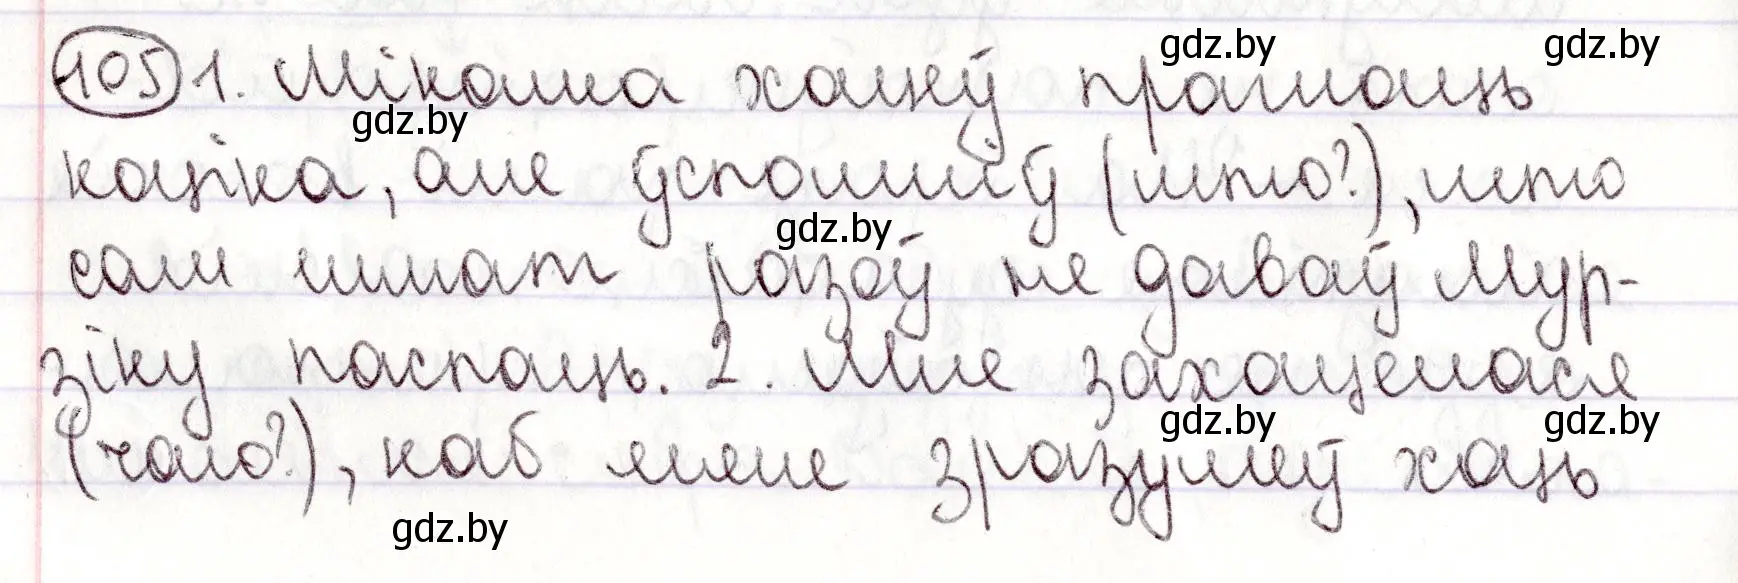 105 1. Мікола хацеў прагнаць
коціка, але ўспомніў (што?), што
сам шмат разоў не даваў Мур-
зіку паспаць. 2. Мне захацелася
(чаго?), каб мяне зразумеў хоць
gdz.by
gdz.by
gdz.by
gdz.by
gdz.by
gdz.by